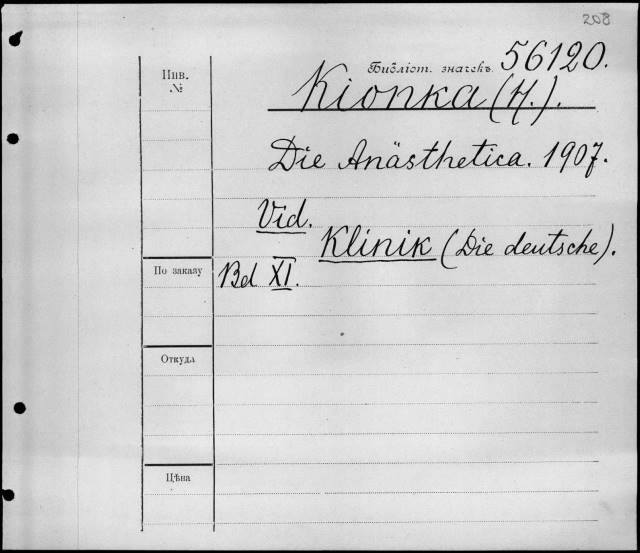 208
Инв.
№
Библіот. значекъ 56120.
Kionka (H.).
Die Anästhetica. 1907.
Vid.
Klinik (Die deutsche).
По заказу
Bd XI.
Откуда
Цѣна